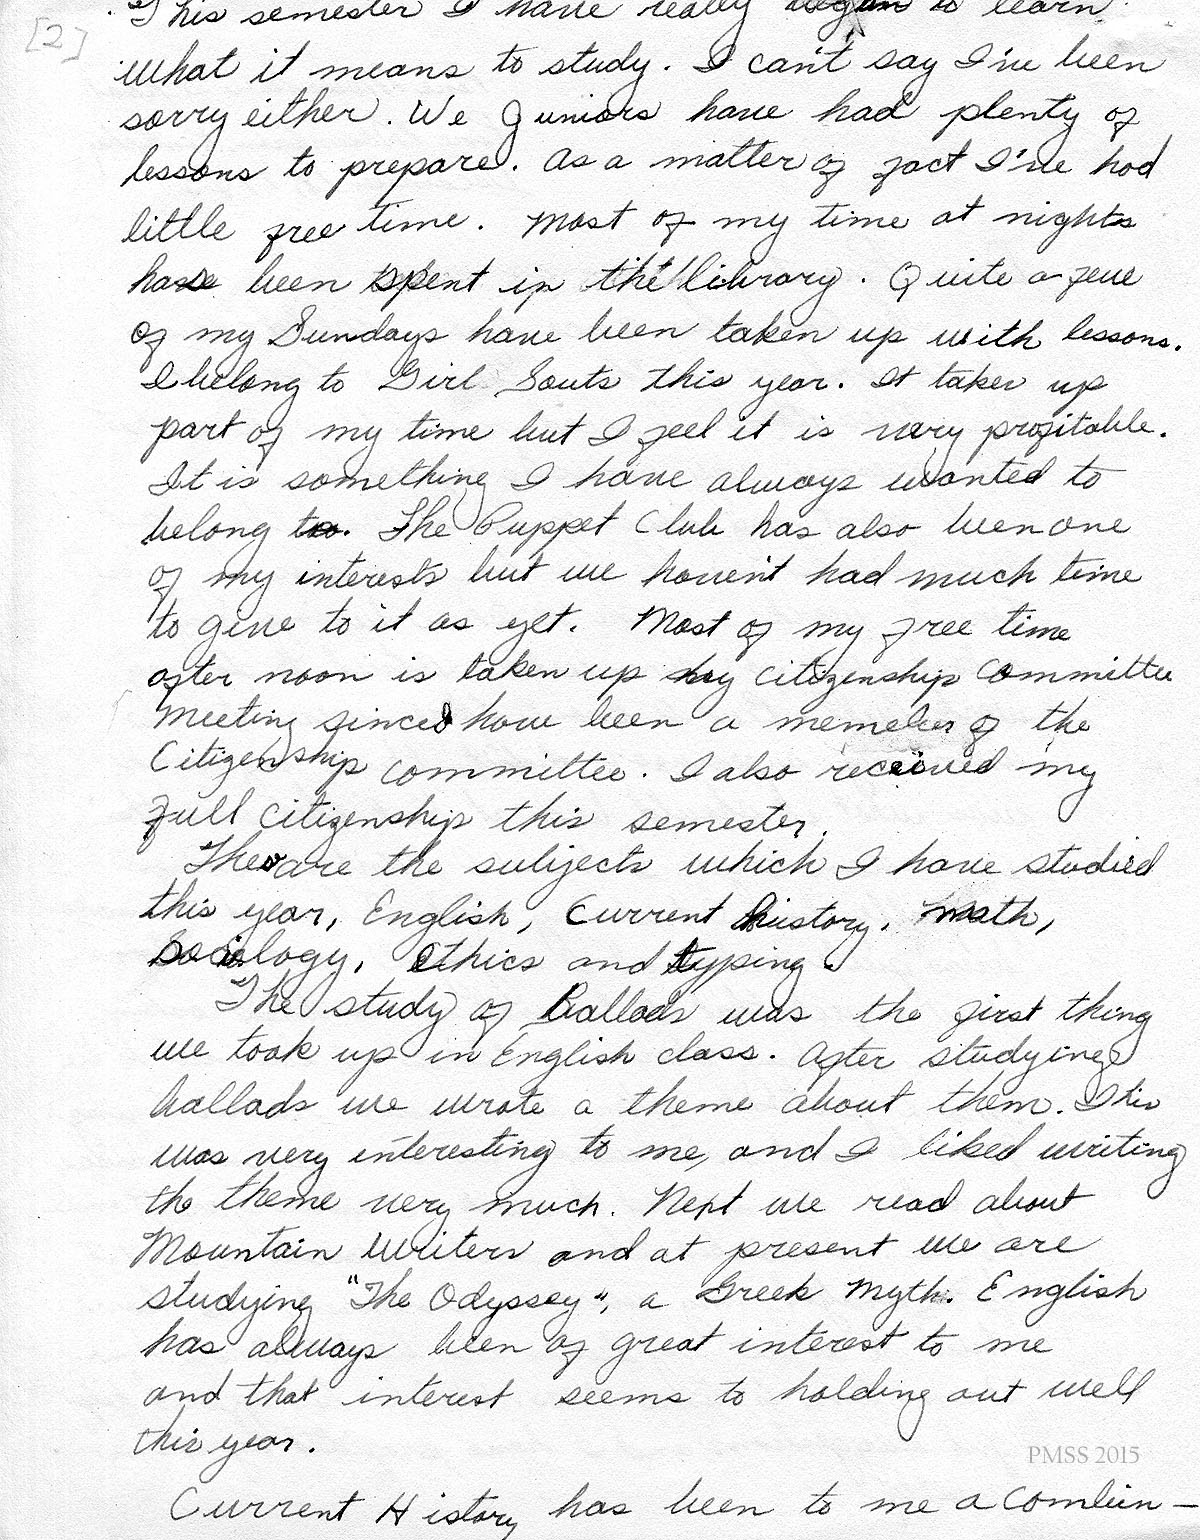 [2]
This semester I have really began to learn
what it means to study. I can't say I've been
sorry either. We Juniors have had plenty of
lessons to prepare. As a matter of fact I've had
little free time. Most of my time at nights
have been spent in the library. Quite a few
of my Sundays have been taken up with lessons.
I belong to Girl Souts this year. It takes up
part of my time but I feel it is very profitable.
It is something I have always wanted to
belong to. The Puppet Club has also been one
of my interests but we haven't had much time
to give to it as yet. Most of my free time
after noon is taken up by citizenship committee
meeting since I have been a memeber of the
Citizenship committee. I also received my
full citizenship this semester.
These are the subjects which I have studied
this year, English, Current history, math,
Sociology, Ethics and typing.
The study of Ballads was the first thing
we took up in English class. After studying
ballads we wrote a theme about them. This
was very interesting to me, and I liked writing
the theme very much. Next we read about
Mountain Writers and at present we are
studying "The Odyssey", a Greek Myth. English
has always been of great interest to me
and that interest seems to holding out well
this year.
Current History has been to me a combin-
PMSS 2015